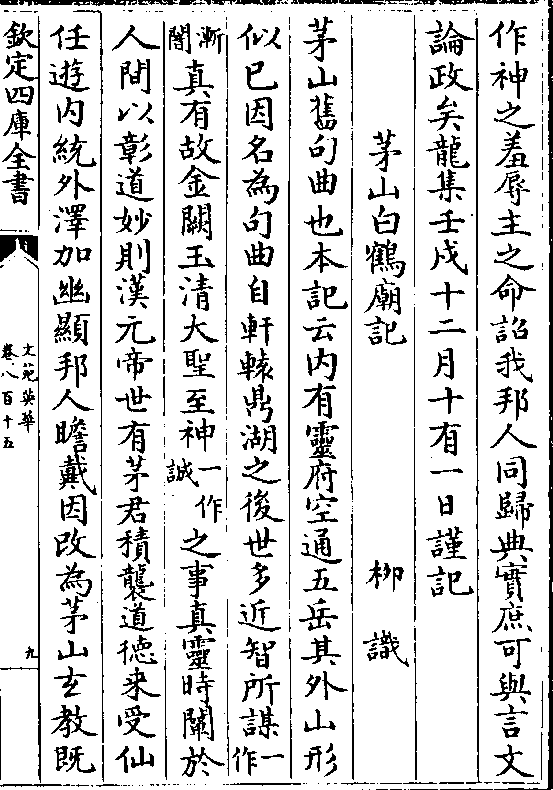 作神之羞辱主之命詔我邦人同歸典實庶可與言文
論政矣龍集壬戌十二月十有一日謹記
茅山白鶴廟記 柳識
茅山舊句曲也本記云内有靈府空通五岳其外山形
似已因名為句曲自軒轅鼎湖之後世多近智所謀一作
漸闇真有故金闕玉清大聖至神一作誠之事真靈時關於
人間以彰道妙則漢元帝世有茅君積襲道徳来受仙
任遊内統外澤加幽顯邦人瞻戴因改為茅山玄教既
欽定四庫全書
文苑英華
卷八百十五
九